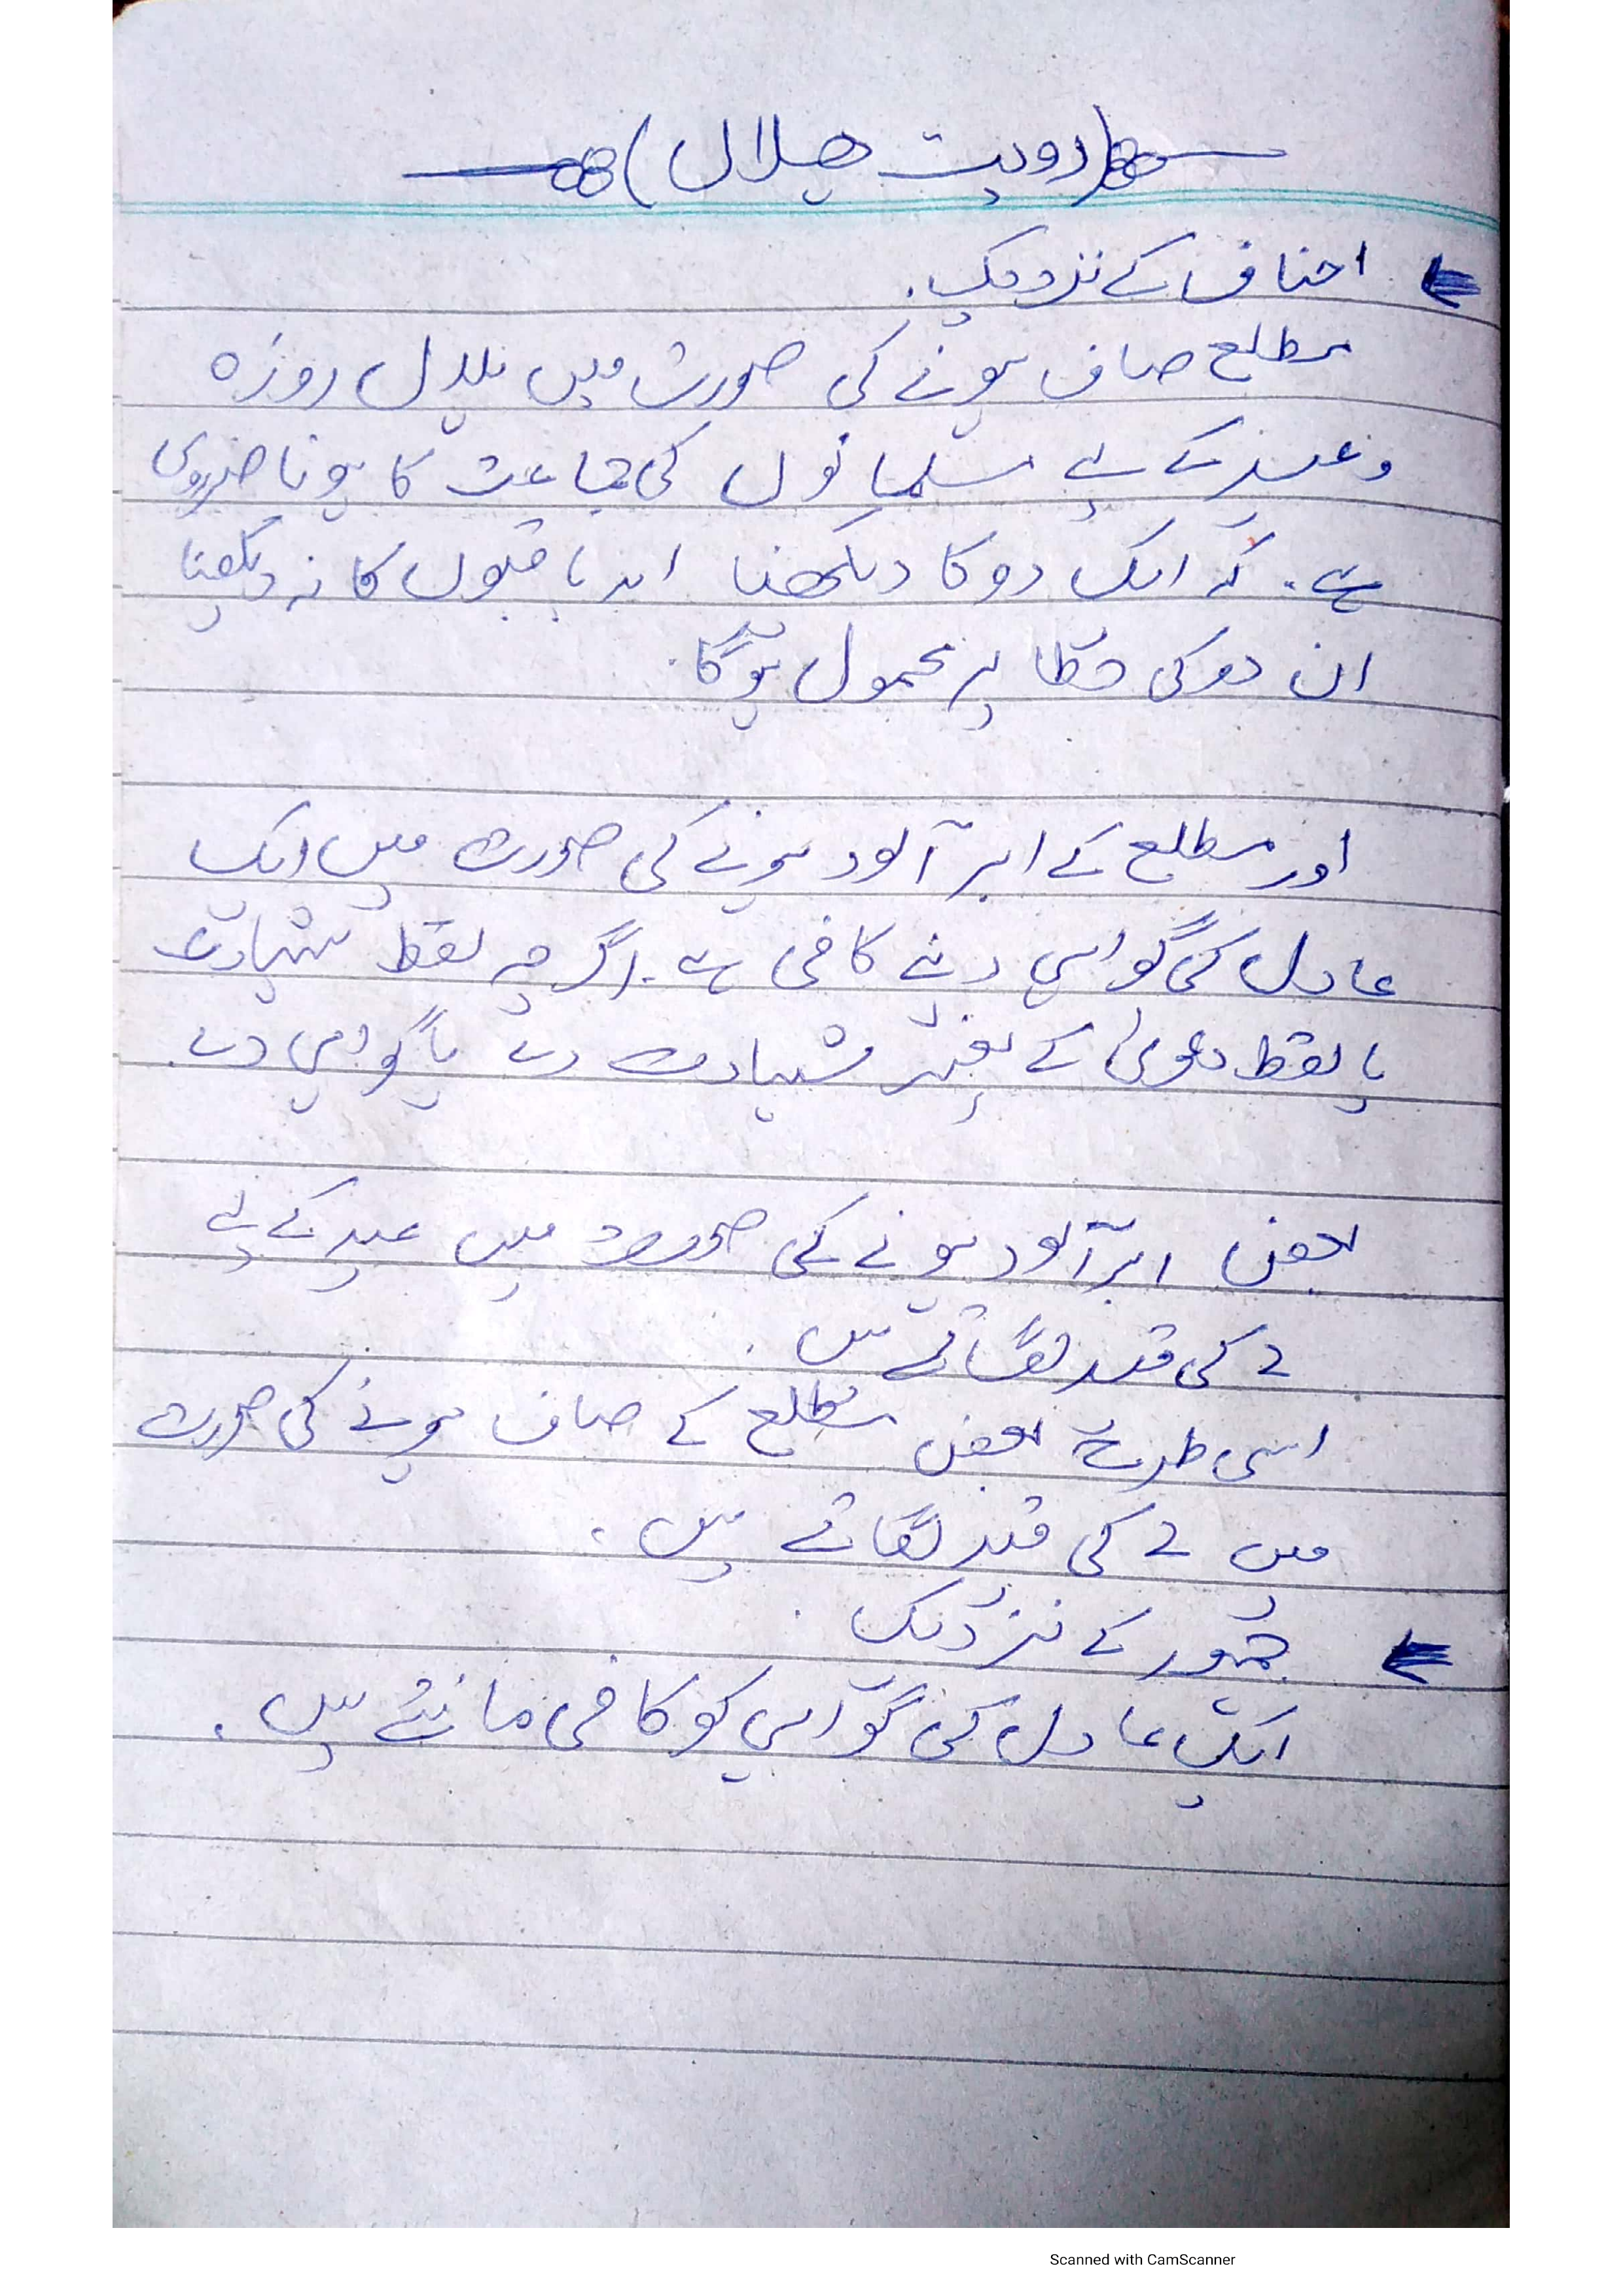 (رویت ھلال)
احناف کے نزدیک.
مطلع صاف ہونے کی صورت میں ہلال روزہ
وعید کے لیے مسلمانوں کی جماعت کا ہونا ضروری
ہے. کہ ایک دو کا دیکھنا اور باقیوں کا نہ دیکھنا
ان دو کی خطا پر محمول ہوگا.
اور مطلع کے ابر آلود ہونے کی صورت میں ایک
عادل کی گواہی کافی ہے. اگرچہ لفظ شہادت
یا لفظ دعویٰ کے بغیر شہادت دے یا گواہی دے
بعض ابر آلود ہونے کی صورت میں عید کے لیے
2 کی قید لگاتے ہیں.
اسی طرح بعض مطلع کے صاف ہونے کی صورت
میں 2 کی قید لگاتے ہیں.
جمہور کے نزدیک.
ایک عادل کی گواہی کو کافی مانتے ہیں.
Scanned with CamScanner